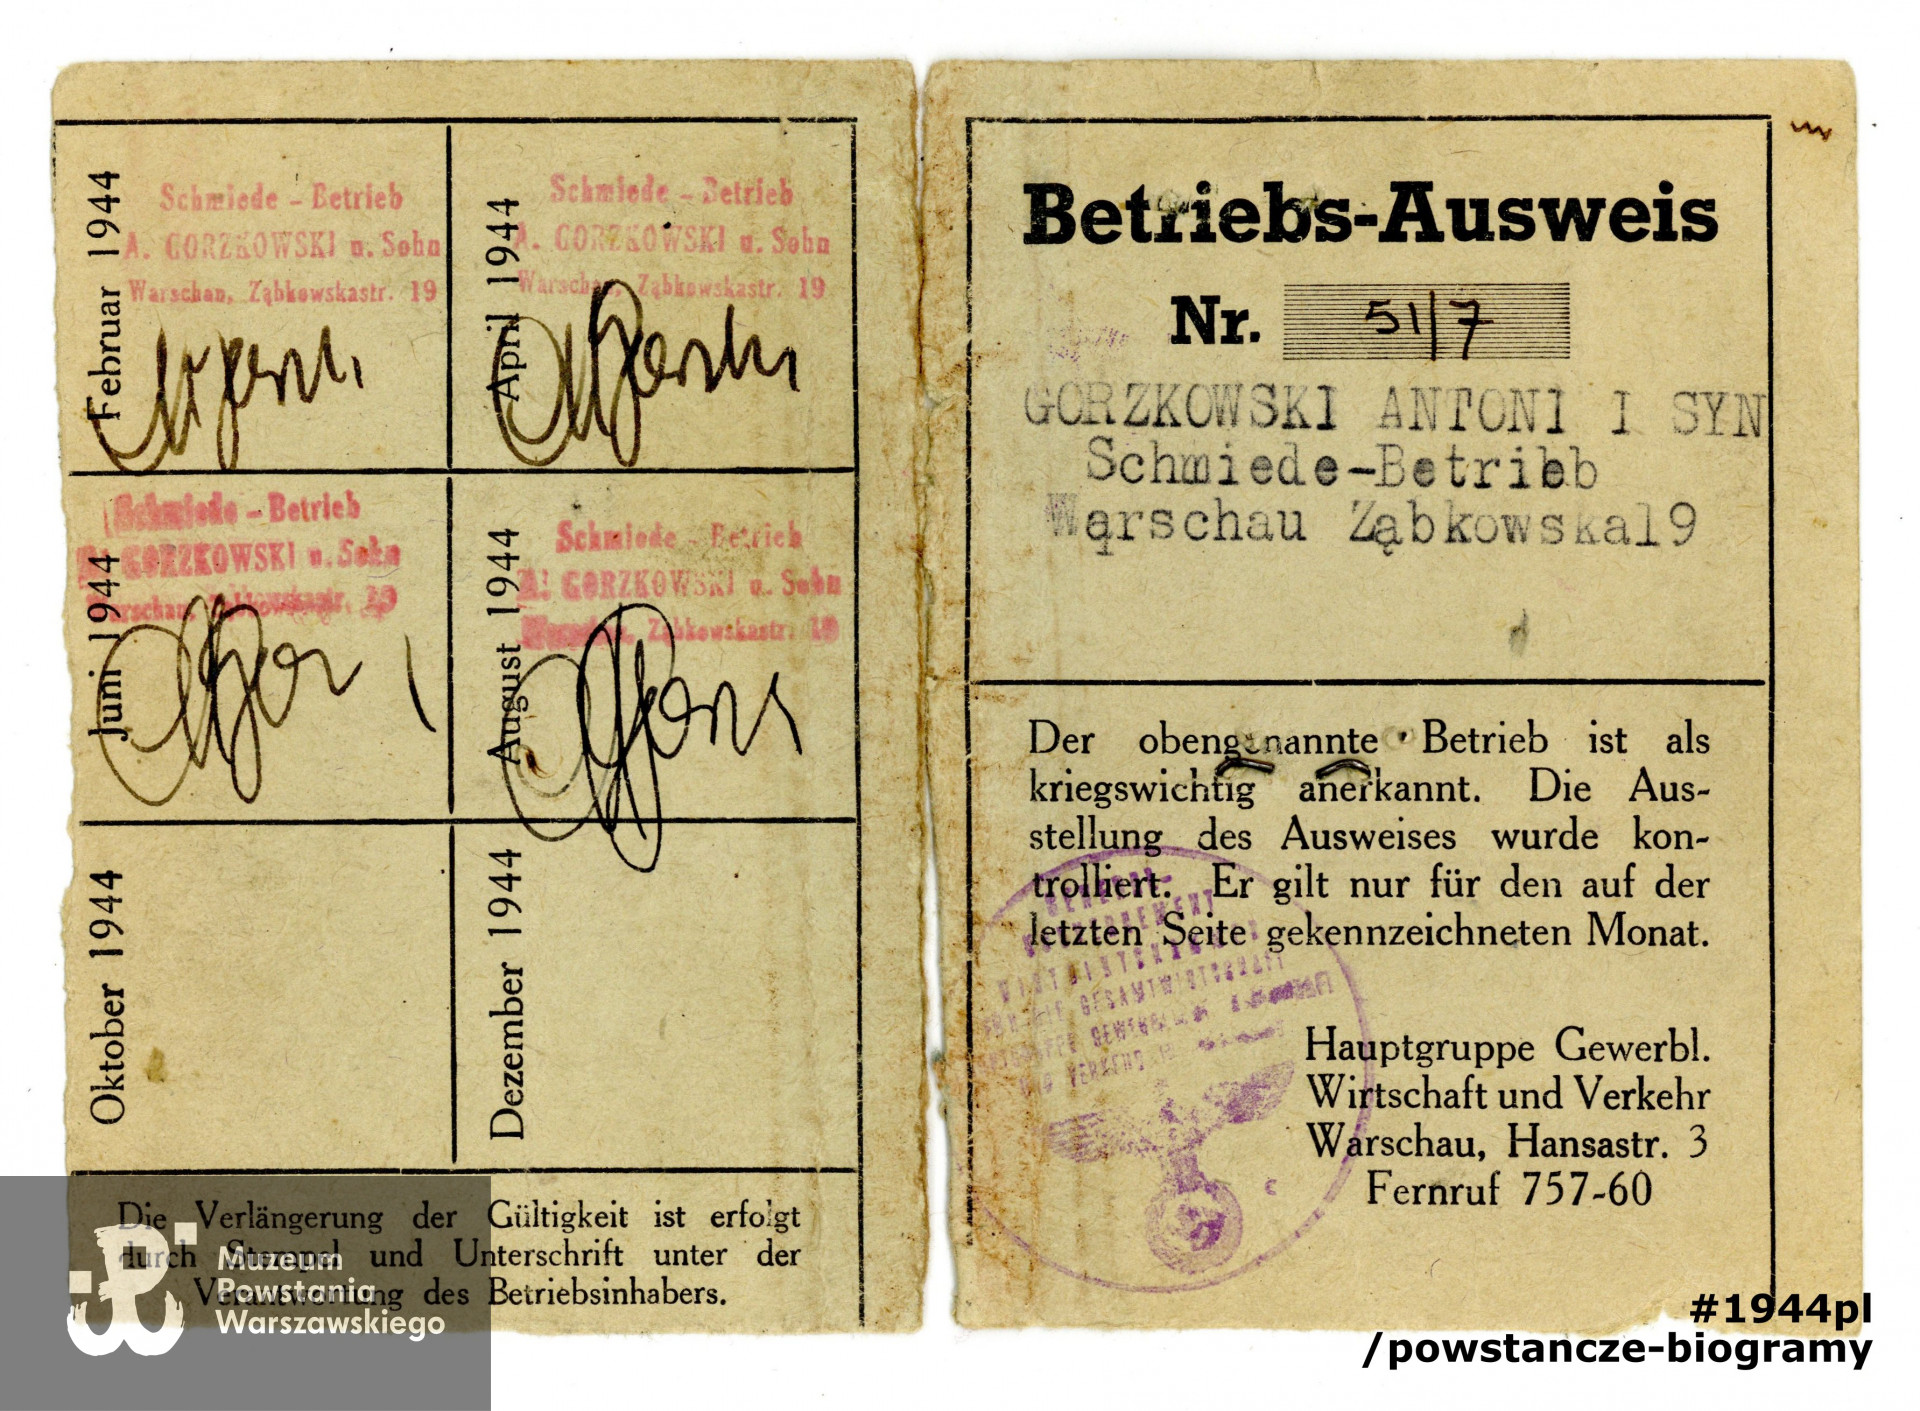 Februar 1944
Schmiede - Betrieb
A. GORZKOWSKI u. Sohn
Warschau, Ząbkowskastr. 19
April 1944
Schmiede - Betrieb
A. GORZKOWSKI u. Sohn
Warschau, Ząbkowskastr. 19
Juni 1944
Schmiede - Betrieb
GORZKOWSKI u. Sohn
Warschau, Ząbkowskastr. 19
August 1944
Schmiede - Betrieb
A. GORZKOWSKI u. Sohn
Warschau, Ząbkowskastr. 19
Oktober 1944
Dezember 1944
Die Verlängerung der Gültigkeit ist erfolgt
durch Stempel und Unterschrift unter der
Verantwortung des Betriebsinhabers.
Muzeum
Powstania
Warszawskiego
Betriebs-Ausweis
Nr. 51/7
GORZKOWSKI ANTONI I SYN
Schmiede-Betrieb
Warschau Ząbkowska19
Der obengenannte Betrieb ist als
kriegswichtig anerkannt. Die Aus-
stellung des Ausweises wurde kon-
trolliert. Er gilt nur für den auf der
letzten Seite gekennzeichneten Monat.
GESAMTWIRTSCHAFT
Hauptgruppe Gewerbl.
Wirtschaft und Verkehr
Warschau, Hansastr. 3
Fernruf 757-60
#1944pl
/powstancze-biogramy